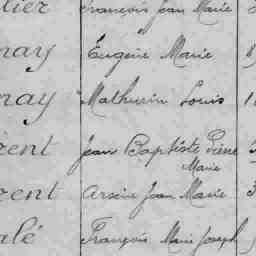 lier François Jean Marie
nay Eugène Marie
nay Mathurin Louis
rent Jean Baptiste Pierre
Marie
zent Arsène Jean Marie
alé François Marie Joseph